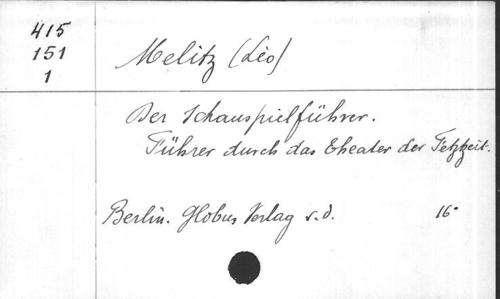 415
151
1
Melitz (Léo)
Der Schauspielführer.
Führer durch das Theater der Jetztzeit.
Berlin. Globus Verlag s.d. 16°